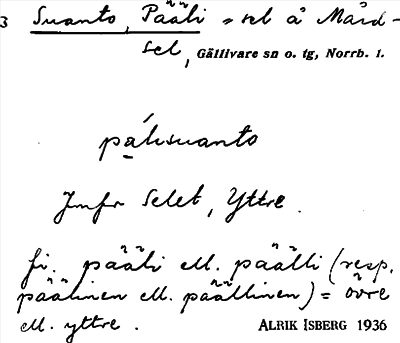 3 Suanto, Pääli = sel å Mård-
sel, Gällivare sn o. tg, Norrb. l.
pálisuanto
Jmfr Selet, Yttre.
fi. pääli ell. päälli (resp.
päälinen ell. päällinen) = övre
ell. yttre.
ALRIK ISBERG 1936